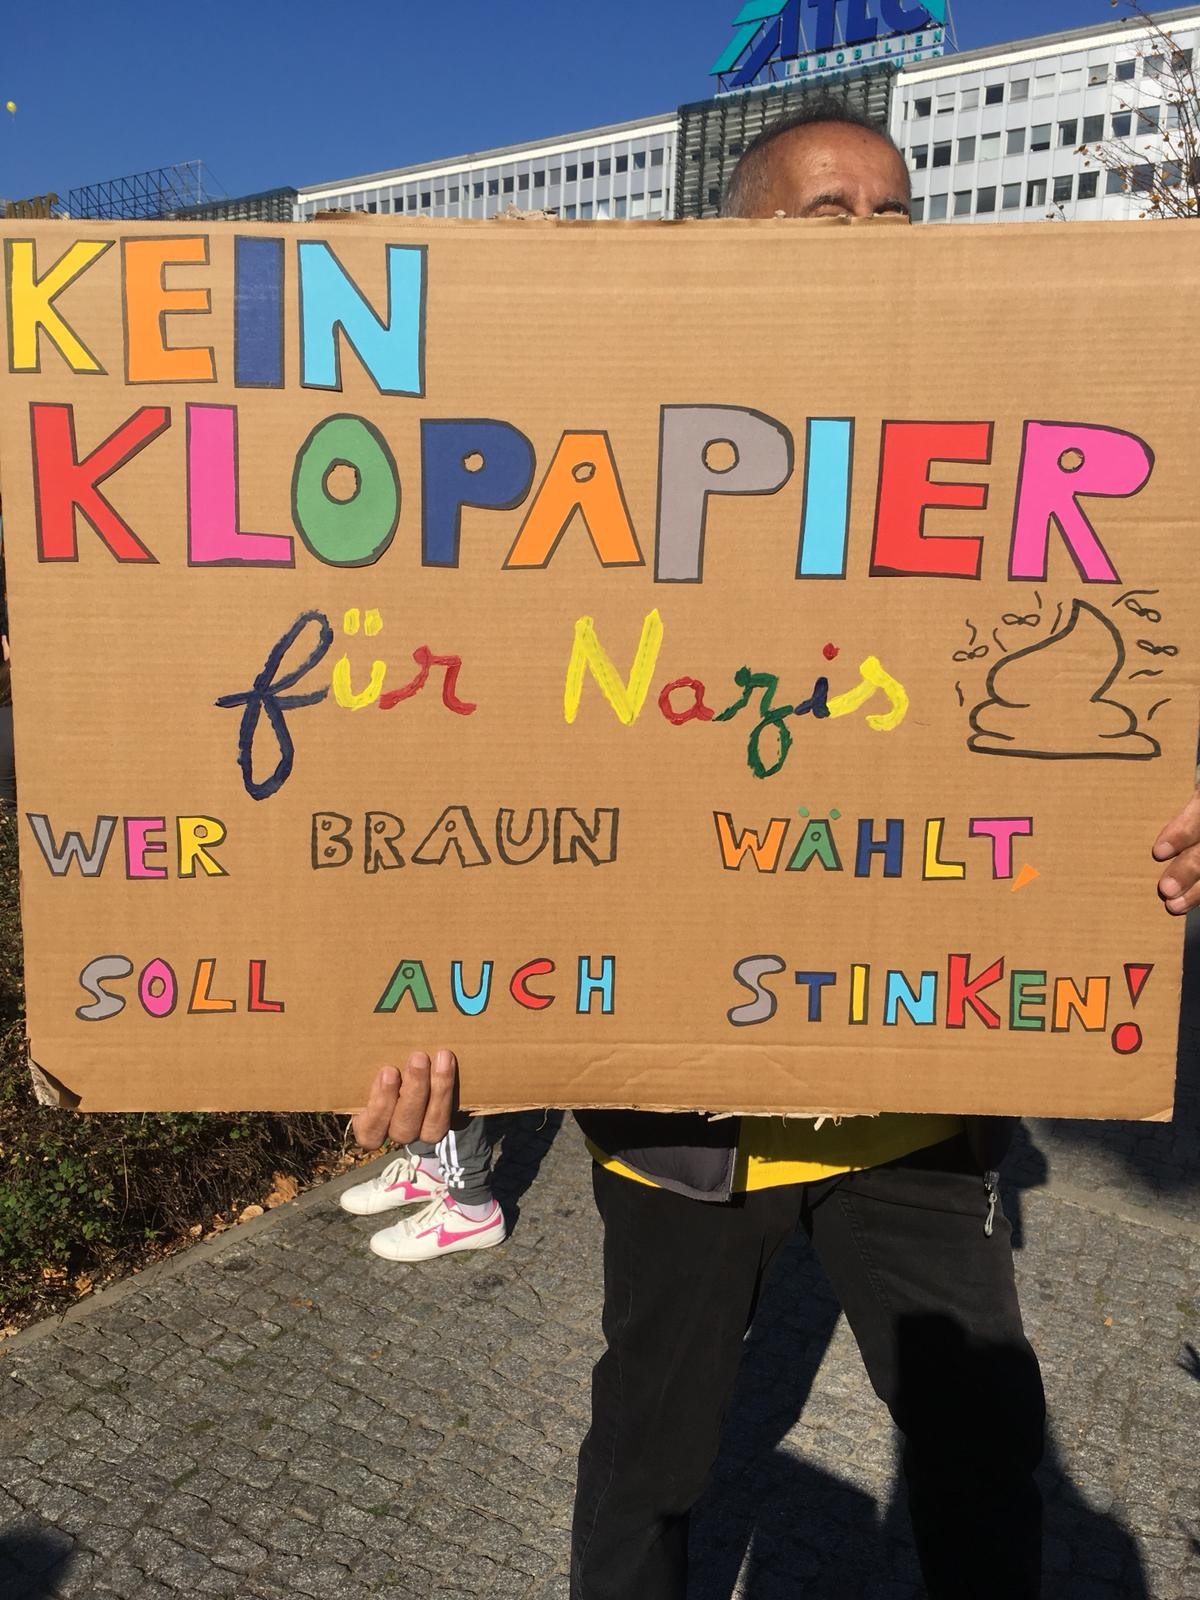 IMMOBILIEN
KEIN
KLOPAPIER
für Nazis
WER BRAUN WÄHLT,
SOLL AUCH STINKEN!